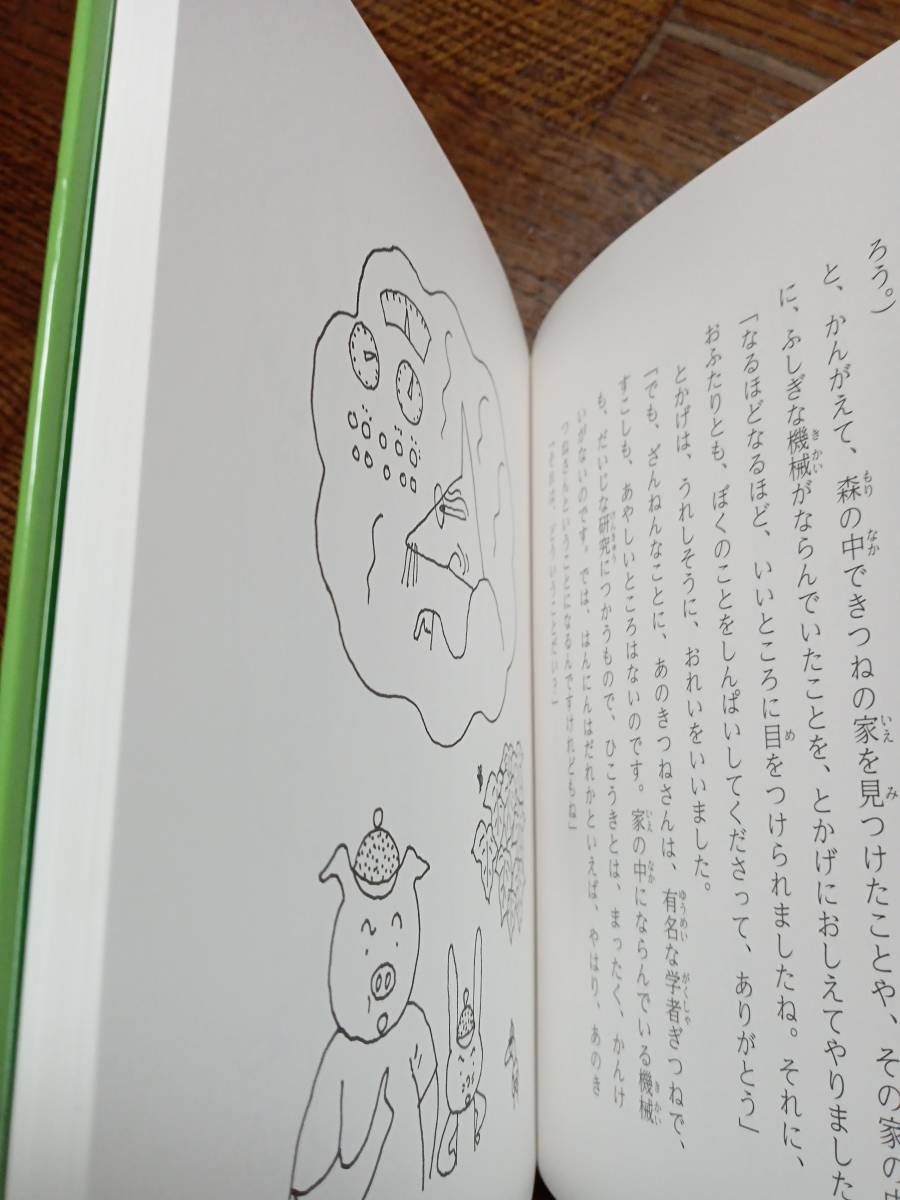 ろう。)
と、かんがえて、森の中できつねの家を見つけたことや、その家の中
に、ふしぎな機械がならんでいたことを、とかげにおしえてやりました
「なるほどなるほど、いいところに目をつけられましたね。それに、
おふたりとも、ぼくのことをしんぱいしてくださって、ありがとう」
とかげは、うれしそうに、おれいをいいました。
「でも、ざんねんなことに、あのきつねさんは、有名な学者ぎつねで、
すこしも、あやしいところはないのです。家の中にならんでいる機械
も、だいじな研究につかうもので、ひこうきとは、まったく、かんけ
いがないのです。では、はんにんはだれかといえば、やはり、あのき
つねさんということになるんですけれどもね」
「それは、どういうことだい?」